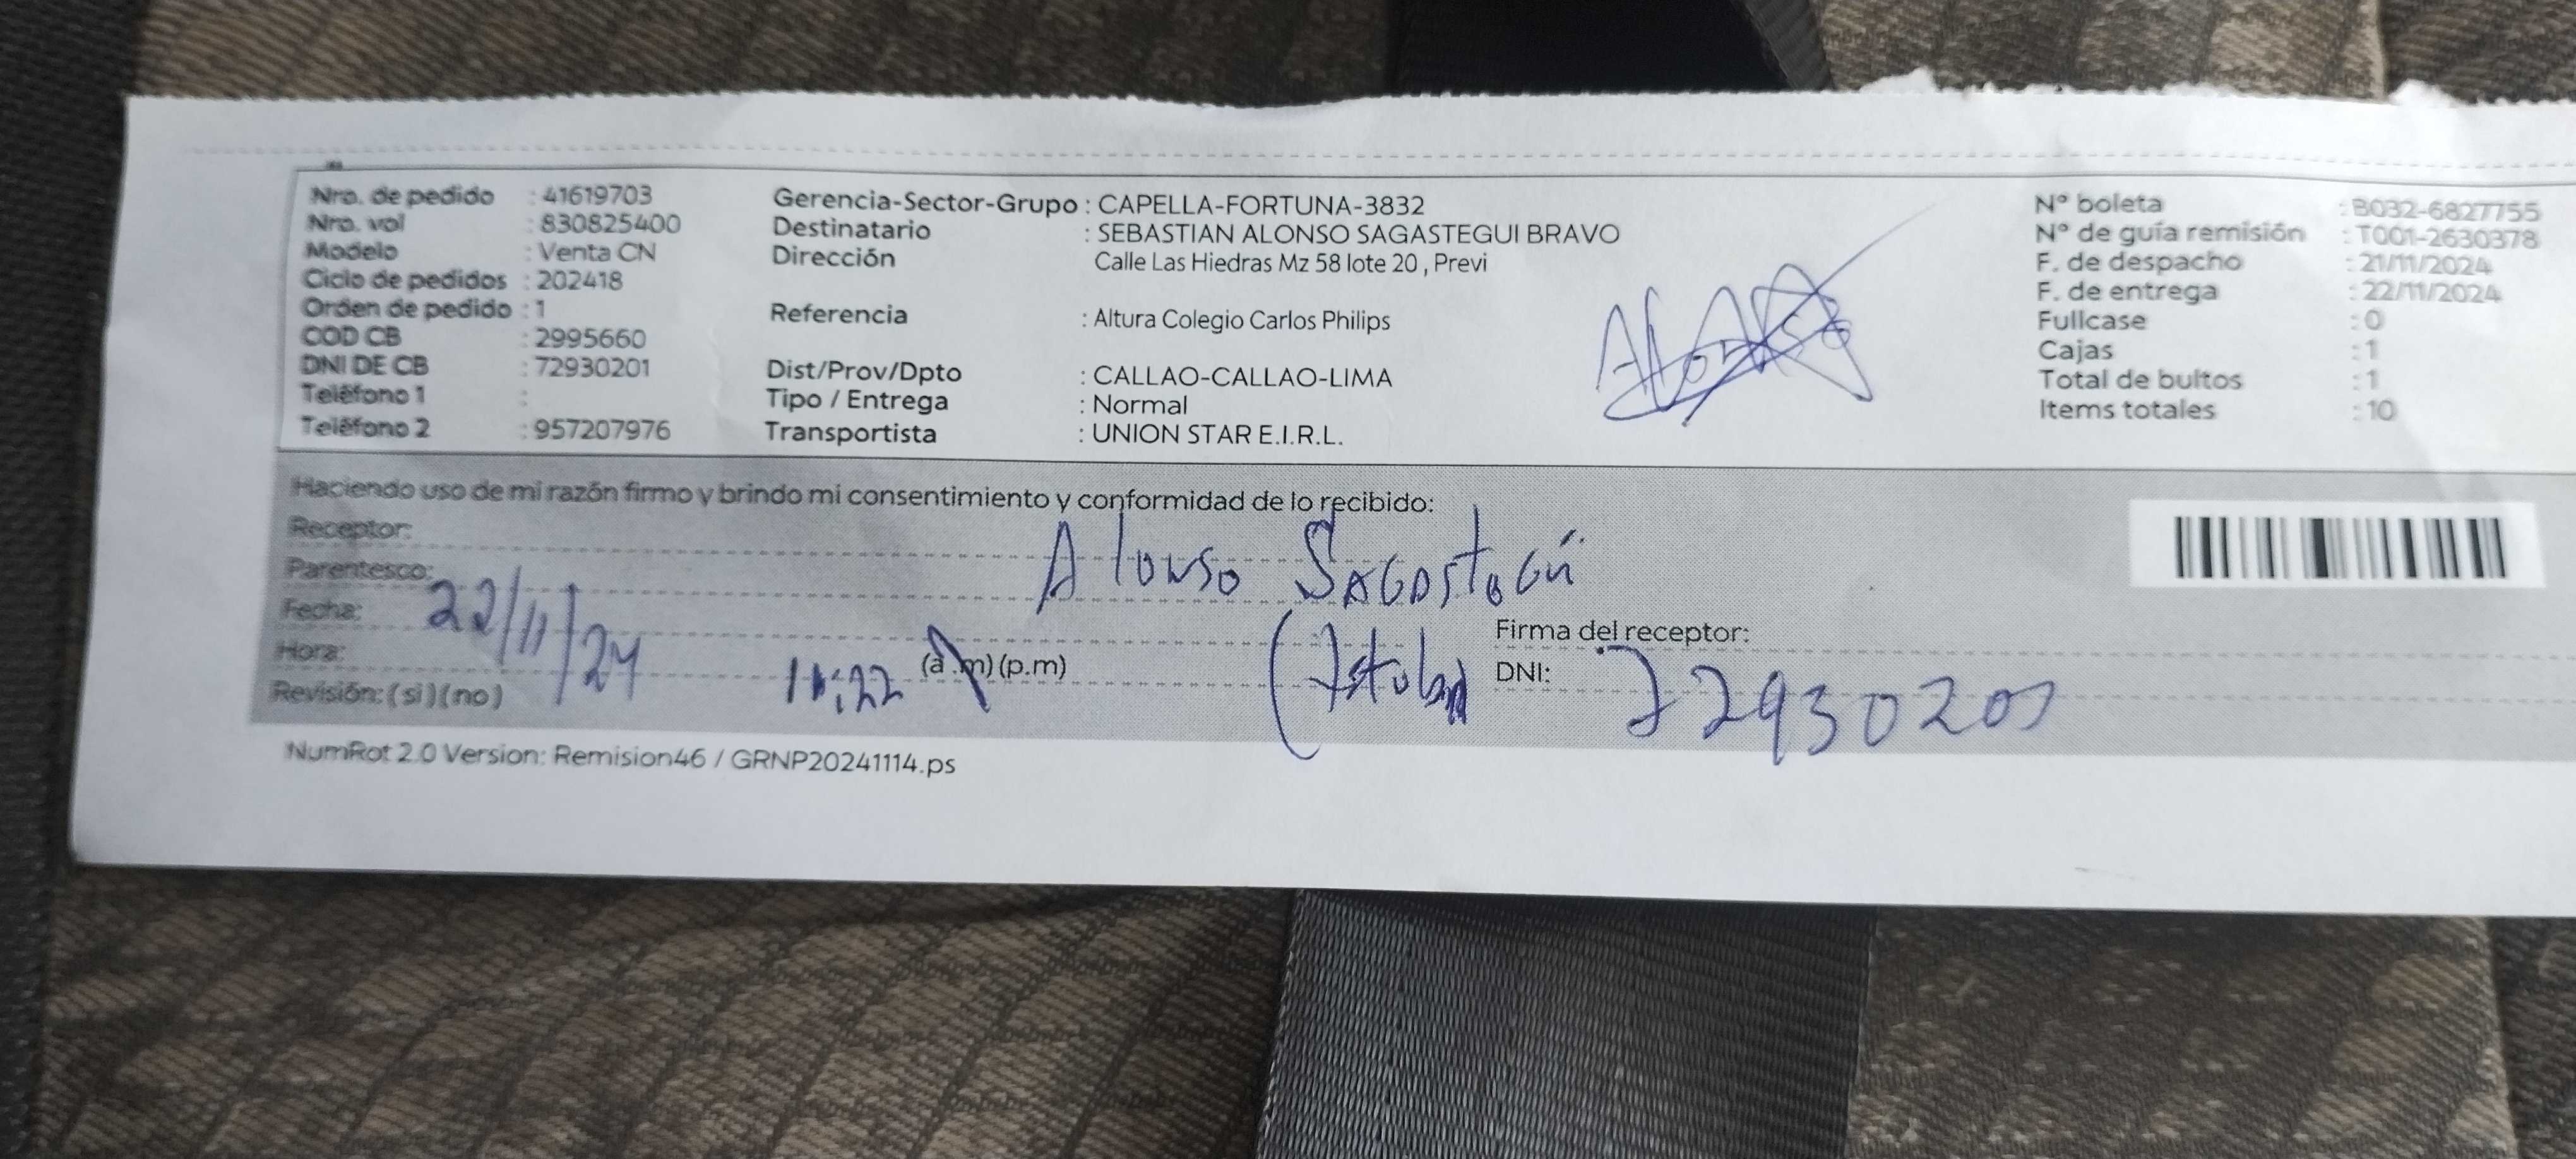 Nro. de pedido : 41619703
Nro. vol : 830825400
Modelo : Venta CN
Ciclo de pedidos : 202418
Orden de pedido : 1
COD CB : 2995660
DNI DE CB : 72930201
Teléfono 1 :
Teléfono 2 : 957207976
Gerencia-Sector-Grupo : CAPELLA-FORTUNA-3832
Destinatario : SEBASTIAN ALONSO SAGASTEGUI BRAVO
Dirección Calle Las Hiedras Mz 58 lote 20 , Previ
Referencia : Altura Colegio Carlos Philips
Dist/Prov/Dpto : CALLAO-CALLAO-LIMA
Tipo / Entrega : Normal
Transportista : UNION STAR E.I.R.L.
Alonso
N° boleta : B032-6827755
N° de guía remisión : T001-2630378
F. de despacho : 21/11/2024
F. de entrega : 22/11/2024
Fullcase : 0
Cajas : 1
Total de bultos : 1
Items totales : 10
Haciendo uso de mi razón firmo y brindo mi consentimiento y conformidad de lo recibido:
Receptor: Alonso
Parentesco:
Fecha: 22/11/24
Hora: (a.m) (p.m)
Revisión: ( si ) ( no )
Firma del receptor:
DNI: 72930201
NumRot 2.0 Version: Remision46 / GRNP20241114.ps